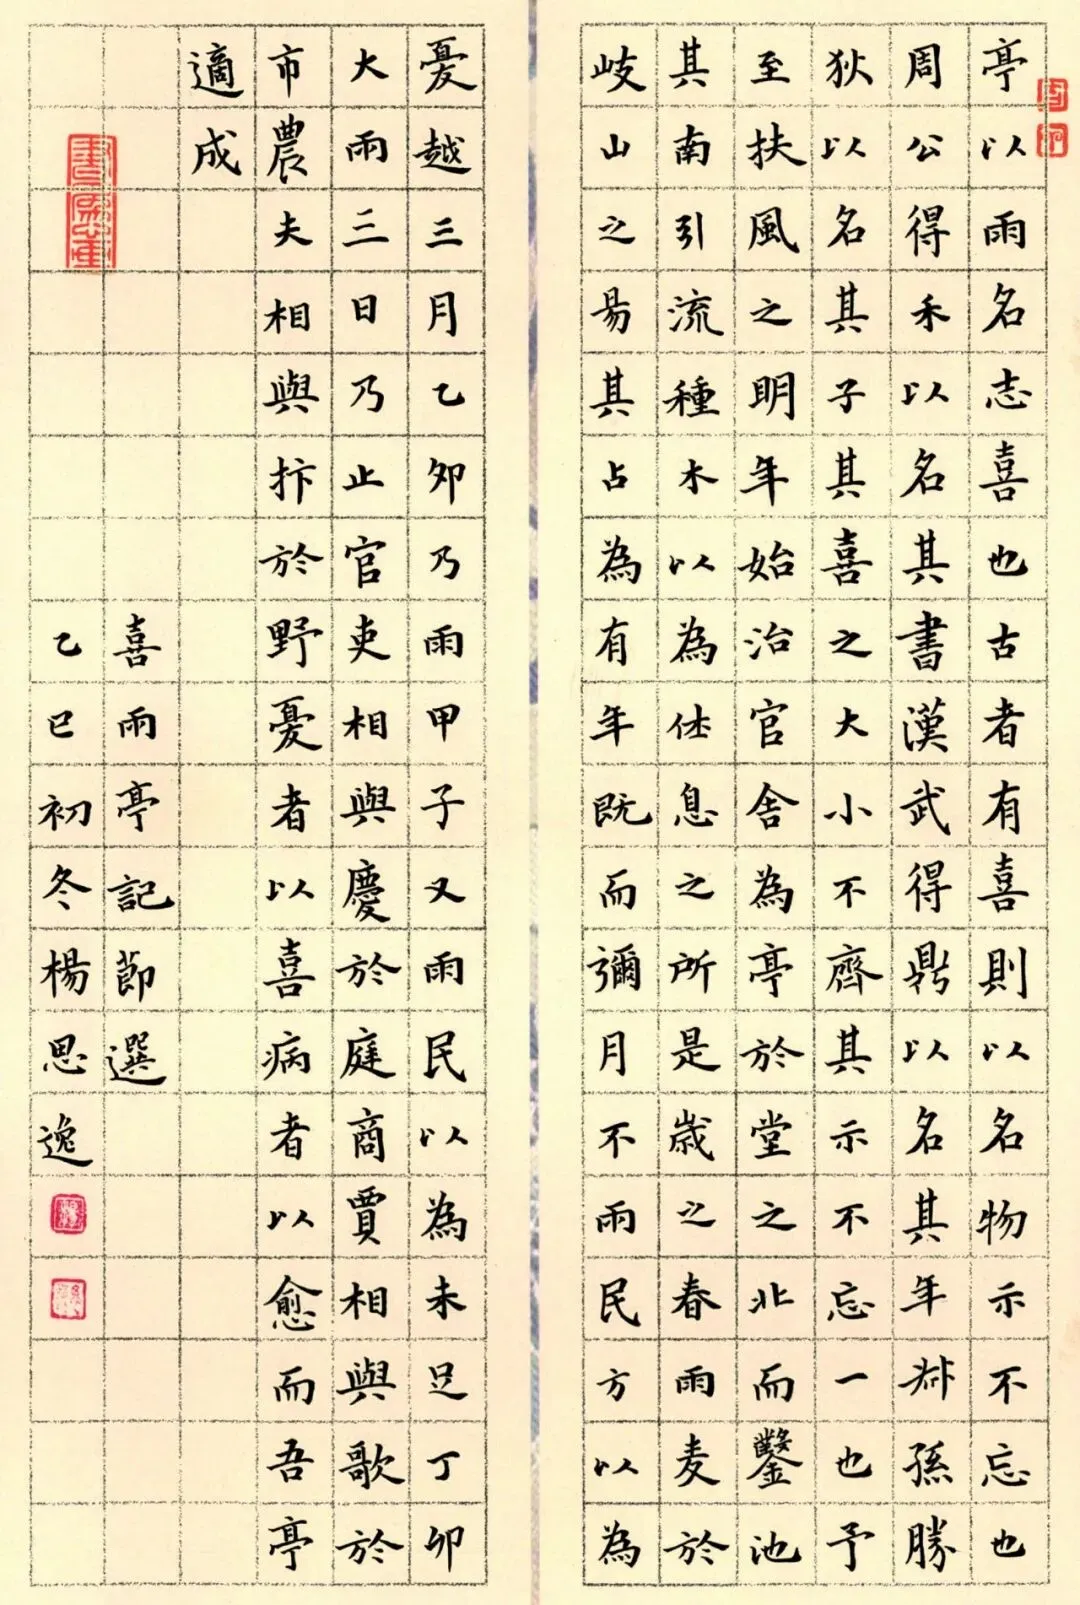 亭以雨名志喜也古者有喜則以名物示不忘也
周公得禾以名其書漢武得鼎以名其年叔孫勝
狄以名其子其喜之大小不齊其示不忘一也予
至扶風之明年始治官舍為亭於堂之北而鑿池
其南引流種木以為休息之所是歲之春雨麦於
岐山之昜其占為有年既而彌月不雨民方以為
憂越三月乙卯乃雨甲子又雨民以為未足丁卯
大雨三日乃止官吏相與慶於庭商賈相與歌於
市農夫相與抃於野憂者以喜病者以愈而吾亭
適成
喜雨亭記節選
乙巳初冬楊思逸